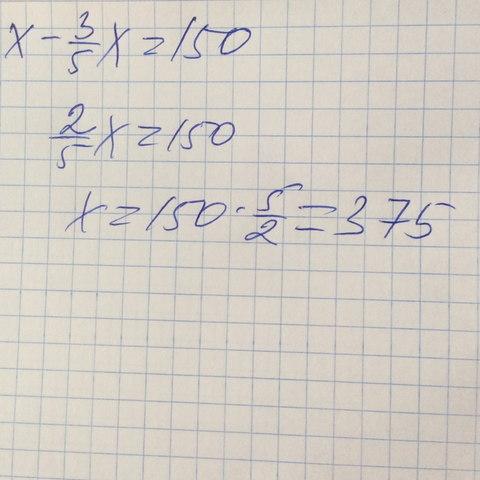 x - 3/5 x = 150
2/5 x = 150
x = 150 · 5/2 = 375